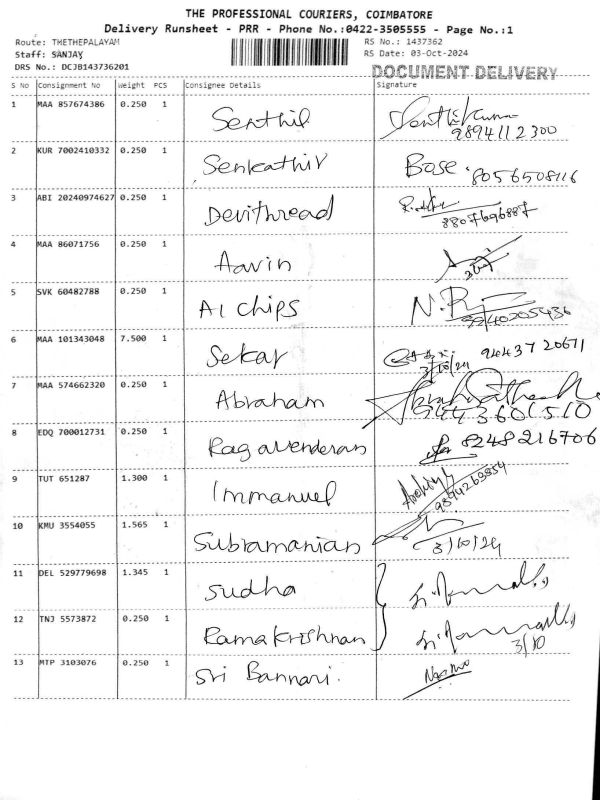 THE PROFESSIONAL COURIERS, COIMBATORE
Delivery Runsheet - PRR - Phone No.:0422-3505555 - Page No.:1
Route: TMETHEPALAYAM
RS No.: 1437362
Staff: SANJAY
RS Date: 03-Oct-2024
DRS No.: DCJB143736201
DOCUMENT DELIVERY
S No Consignment No Weight PCS Consignee Details Signature
1 MAA 857674386 0.250 1 Senthil
9894112300
2 KUR 7002410332 0.250 1 Senkathir Bose. 8056508116
3 ABI 20240974627 0.250 1 Devithread
8807696887
4 MAA 86071756 0.250 1 Aavin
5 SVK 60482788 0.250 1 A1 chips
9940205436
6 MAA 101343048 7.500 1 Sekar 94437 20671
3/10/24
7 MAA 574662320 0.250 1 Abraham
9443601510
8 EDQ 700012731 0.250 1 Ragavenderan 8248216706
9 TUT 651287 1.300 1 Immanuel
10 KMU 3554055 1.565 1 Subramanian
3/10/24
11 DEL 529779698 1.345 1 Sudha
12 TNJ 5573872 0.250 1 Ramakrishnan
3/10
13 MTP 3103076 0.250 1 Sri Bannari.